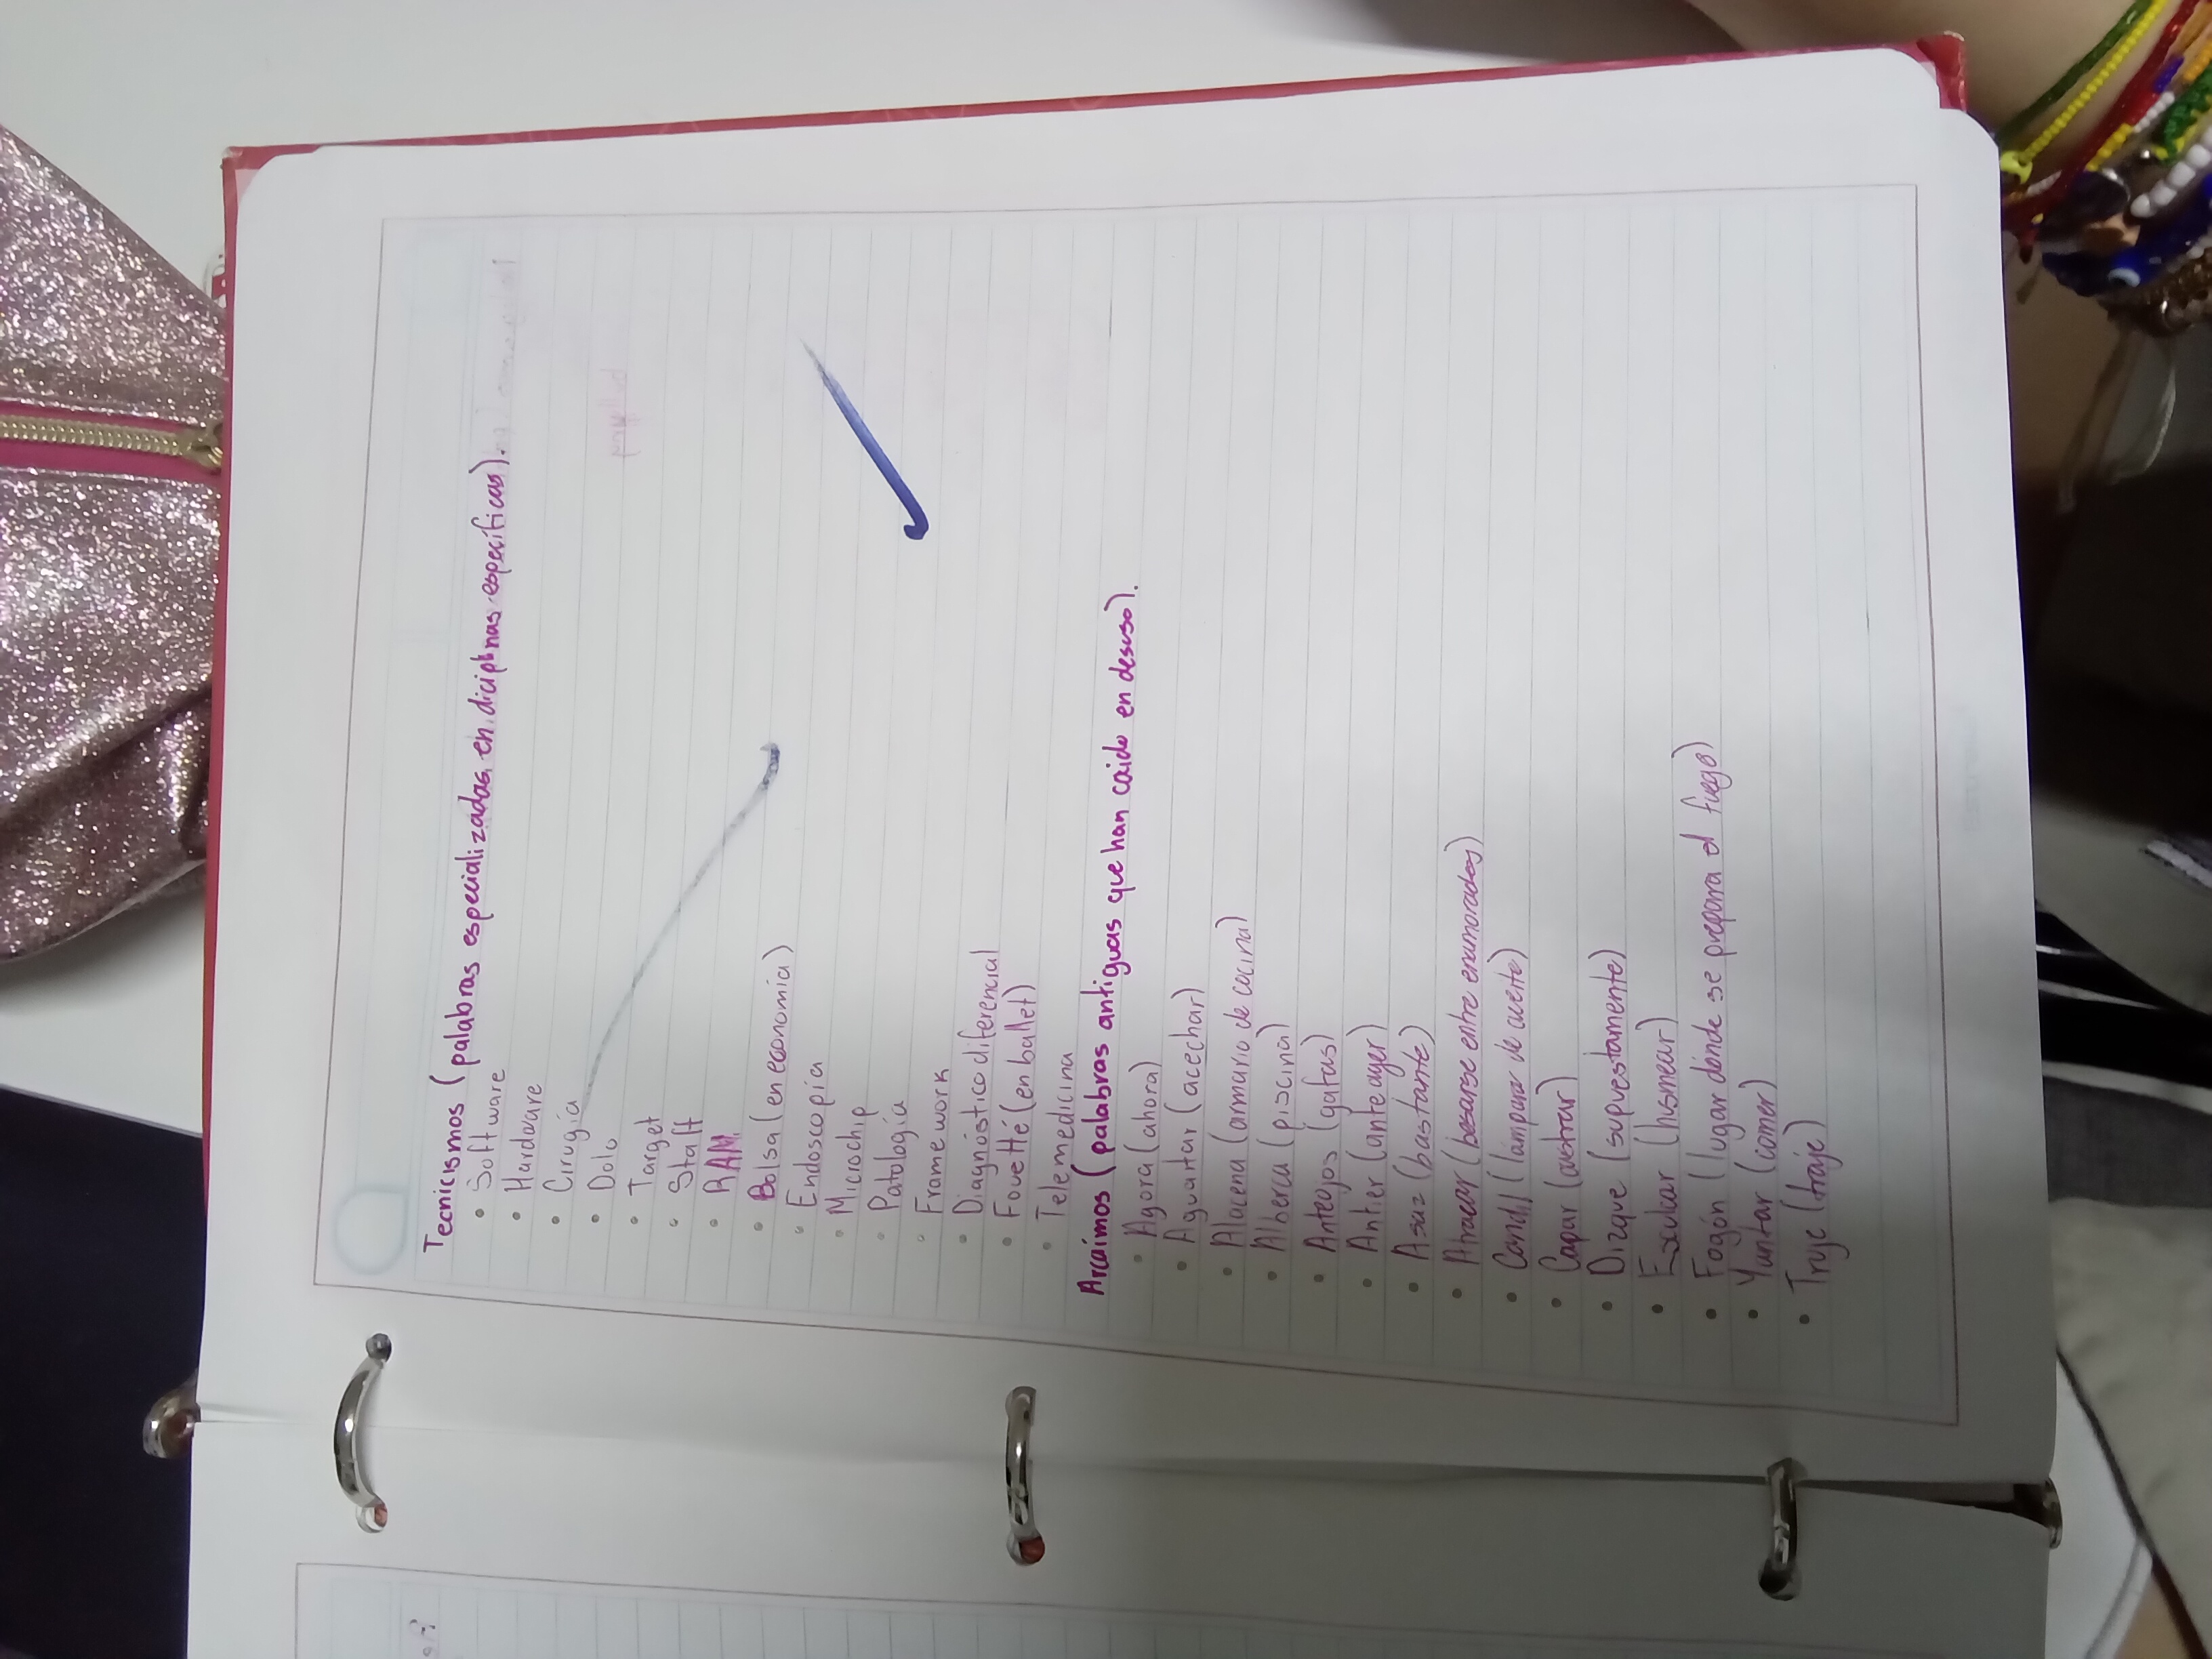 Tecnicismos (palabras especializadas en diciplinas específicas).
• Software
• Hardware
• Cirugía
• Dolo
• Target
• Staff
• RAM
• Bolsa (en economía)
• Endoscopía
• Microchip
• Patología
• Framework
• Diagnóstico diferencial
• Fouetté (en ballet)
• Telemedicina
Arcaímos (palabras antiguas que han caido en desuso).
• Agora (ahora)
• Aguaitar (acechar)
• Alacena (armario de cocina)
• Alberca (piscina)
• Anteojos (gafas)
• Antier (ante ayer)
• Asaz (bastante)
• Atracar (besarse entre enamorados)
• Candil (lámpara de aceite)
• Capar (castrar)
• Dizque (supuestamente)
• Esculcar (husmear)
• Fogón (lugar dónde se prepara el fuego)
• Yantar (comer)
• Truje (traje)